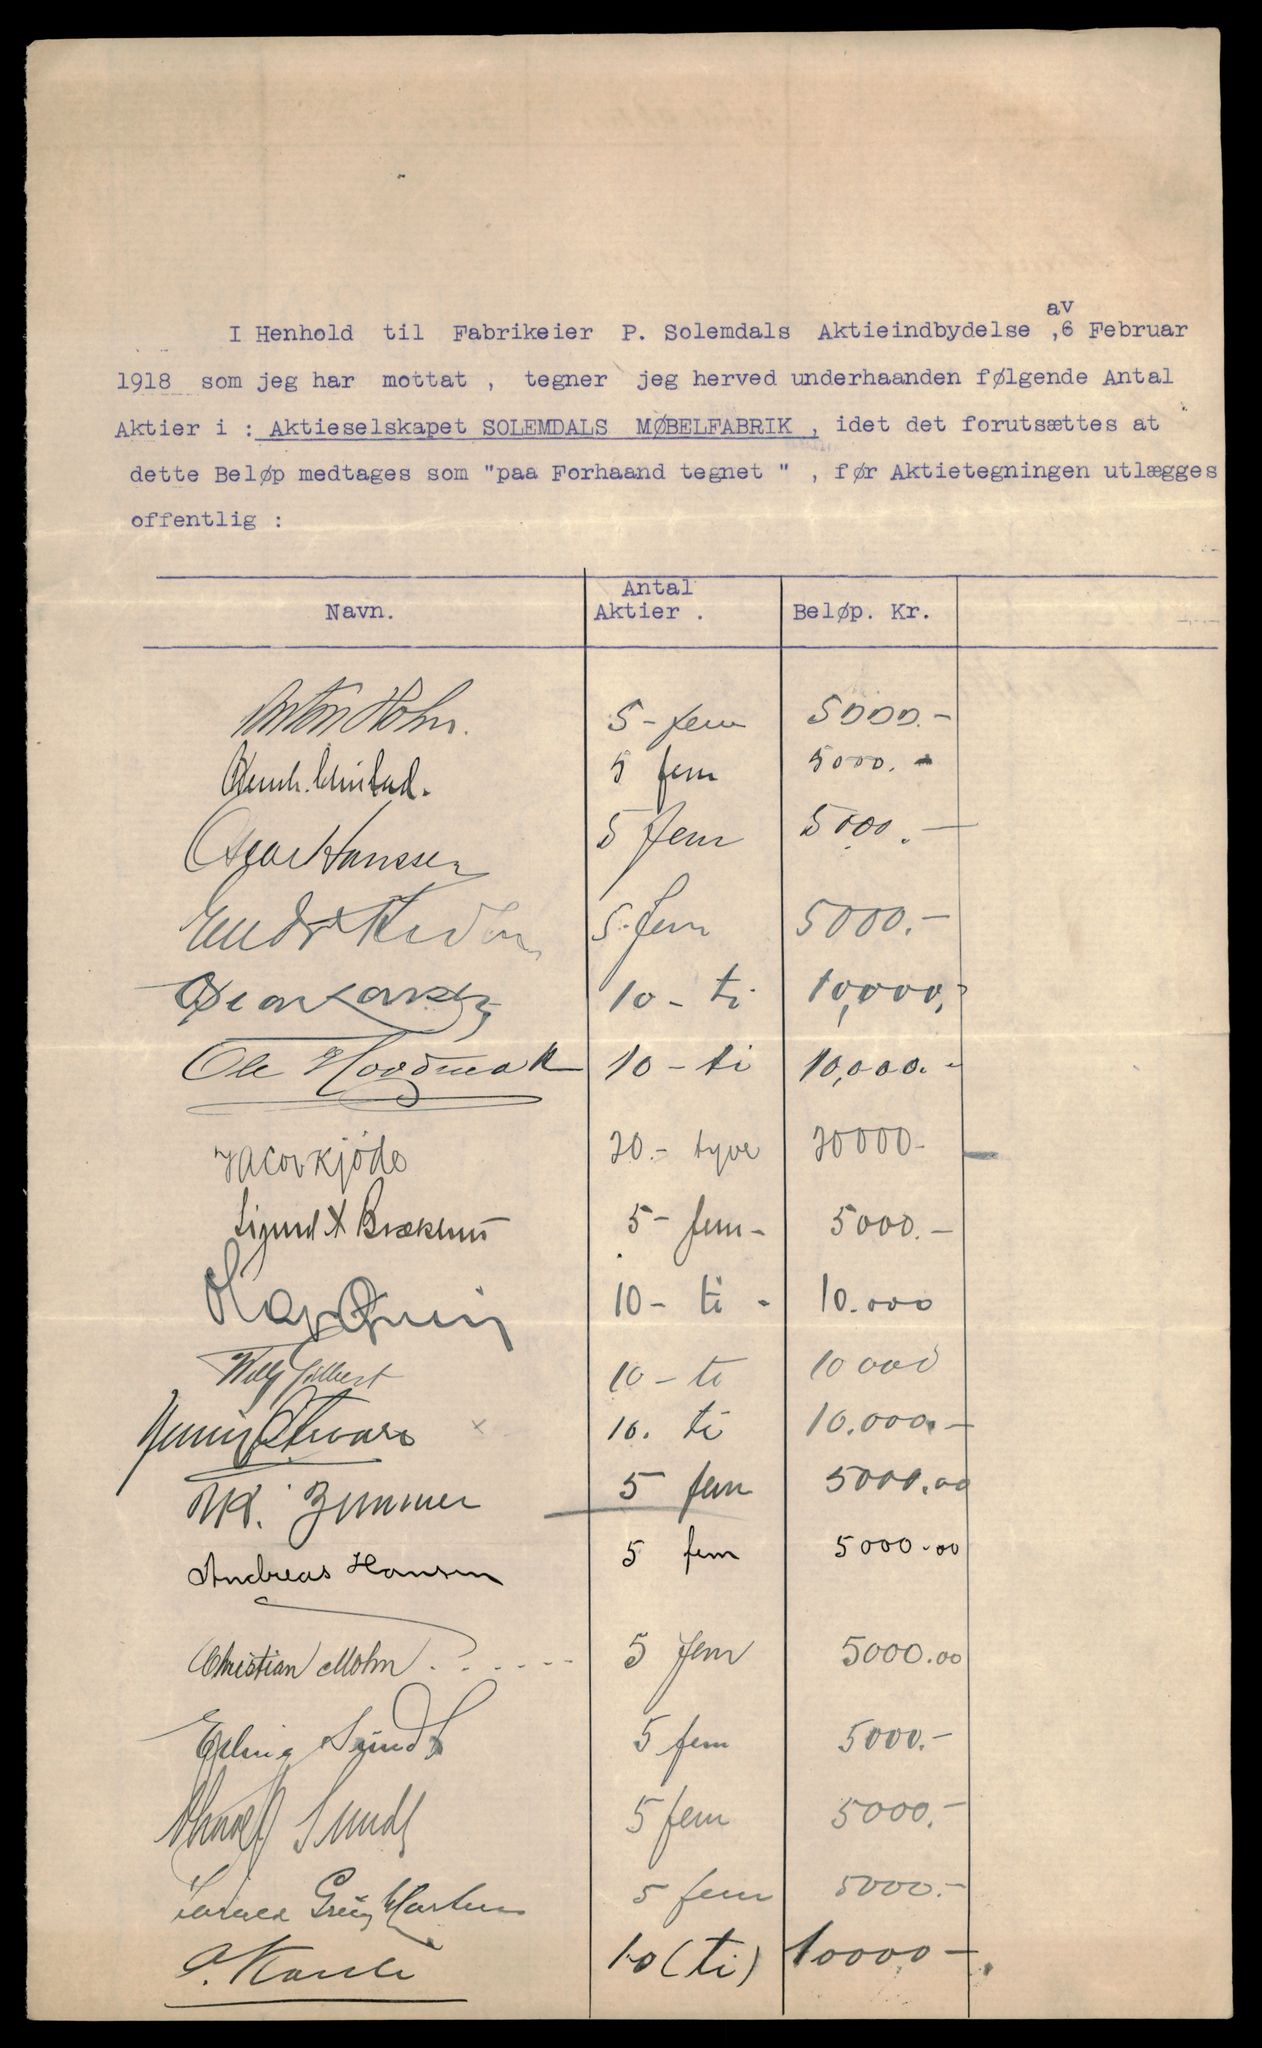 I Henhold til Fabrikeier P. Solemdals Aktieindbydelse av ,6 Februar
1918 som jeg har mottat , tegner jeg herved underhaanden følgende Antal
Aktier i : Aktieselskapet SOLEMDALS MØBELFABRIK , idet det forutsættes at
dette Beløp medtages som "paa Forhaand tegnet " , før Aktietegningen utlægges
offentlig :
Navn. Antal Aktier . Beløp. Kr.
Anton Mohn. 5 - fem 5000.-
5 fem 5000. -
Oscar Hanssen 5 fem 5000. -
5. fem 5000.-
10 - ti 10,000,-
Ole 10 - ti 10,000.-
Jacob Kjøde 20.- tyve 20000-
Sigurd A Brækhus 5 - fem - 5000.-
10 - ti - 10.000
Willy Gilbert 10 - ti 10 000
10. ti 10.000.-
Zimmer 5 fem 5000.00
Andreas Hansen 5 fem 5000.00
Christian Mohn . . . . . . 5 fem 5000.00
Erling Sundt 5 fem 5000.-
Sundt 5 fem 5000.-
Grieg Martens 5 fem 5000.-
10 (ti) 10000 -.